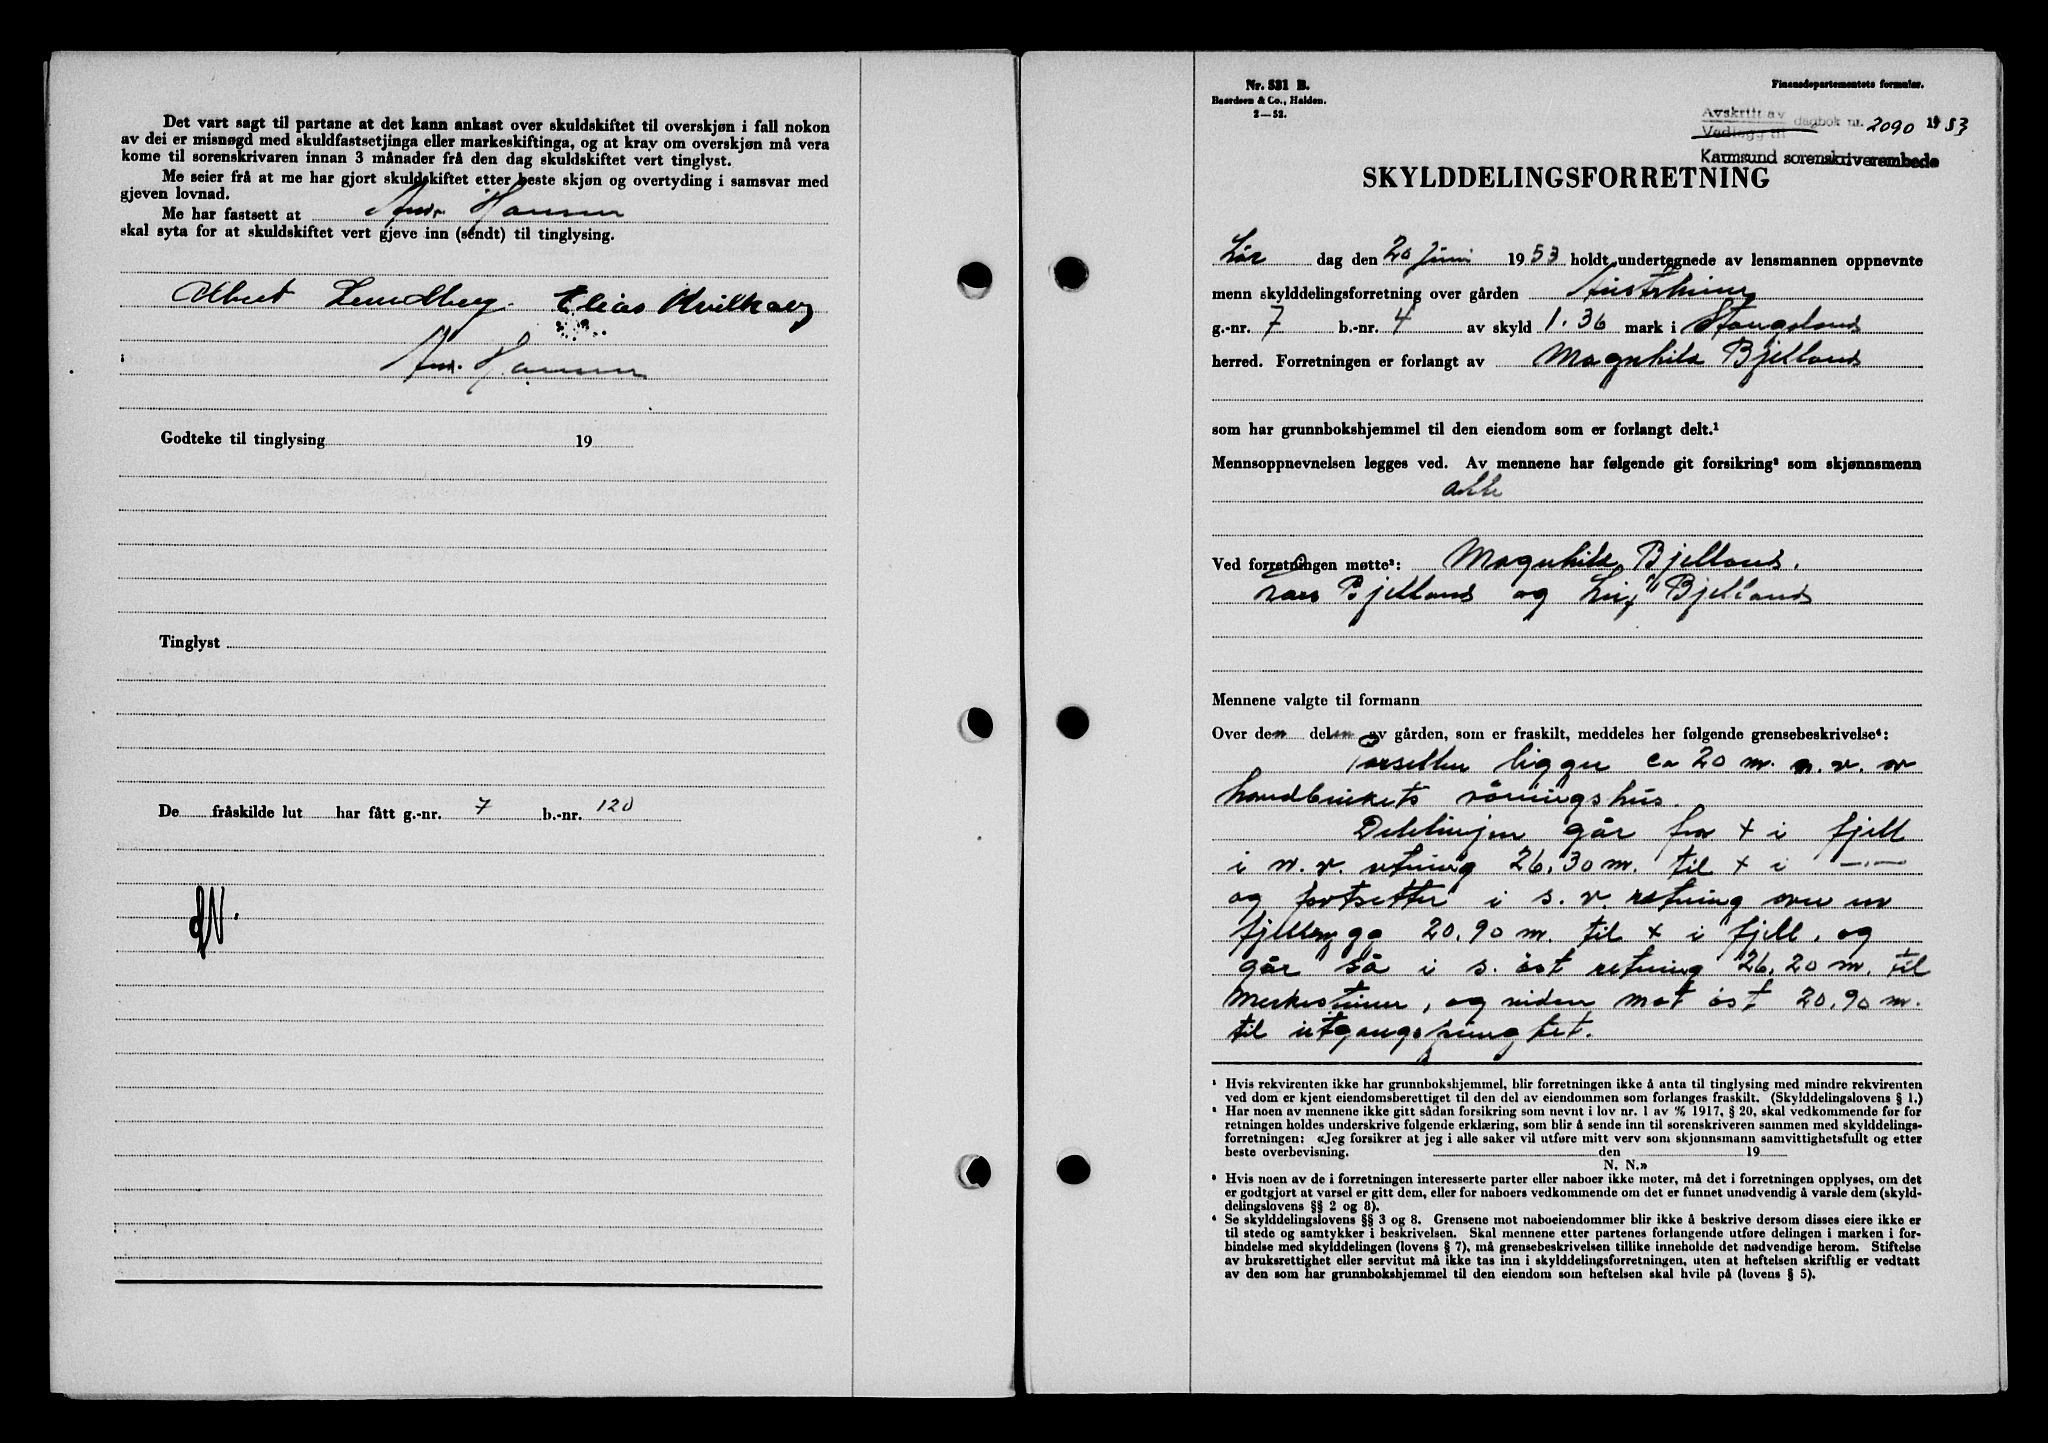 Det vart sagt til partane at det kann ankast over skuldskiftet til overskjøn i fall nokon
av dei er misnøgd med skuldfastsetjinga eller markeskiftinga, og at krav om overskjøn må vera
kome til sorenskrivaren innan 3 månader frå den dag skuldskiftet vert tinglyst.
Me seier frå at me har gjort skuldskiftet etter beste skjøn og overtyding i samsvar med
gjeven lovnad.
Me har fastsett at And. Hansen
skal syta for at skuldskiftet vert gjeve inn (sendt) til tinglysing.
Albert Lundberg. Elias Kvilhaug
And. Hansen
Godteke til tinglysing 19
Tinglyst
De fråskilde lut har fått g.-nr. 7 b.-nr. 120
Nr. 531 B.
Baardsen & Co., Halden.
2—52.
Finansdepartementets formular.
Avskrift av
Vedlegg til dagbok nr. 2090 1953
Karmsund sorenskriverembede
SKYLDDELINGSFORRETNING
Lør dag den 20 Juni 1953 holdt undertegnede av lensmannen oppnevnte
menn skylddelingsforretning over gården
g.-nr. 7 b.-nr. 4 av skyld 1.36 mark i Stangaland
herred. Forretningen er forlangt av Magnhild Bjelland
som har grunnbokshjemmel til den eiendom som er forlangt delt.¹
Mennsoppnevnelsen legges ved. Av mennene har følgende git forsikring² som skjønnsmenn
alle
Ved forretningen møtte³: Magnhild Bjelland.
Lars Bjelland og Leif Bjelland
Mennene valgte til formann
Over den delen av gården, som er fraskilt, meddeles her følgende grensebeskrivelse⁴:
Parsellen ligger ca 20 m. n. v. av
hovedbrukets våningshus.
Delelinjen går fra + i fjell
i n. v. retning 26,30 m. til + i —"—
og fortsetter i s. v. retning over en
fjellrygg 20,90 m. til + i fjell, og
går så i s. öst retning 26,20 m. til
merkesteiner, og siden mot öst 20,90 m.
til utgangspungtet.
¹ Hvis rekvirenten ikke har grunnbokshjemmel, blir forretningen ikke å anta til tinglysing med mindre rekvirenten
ved dom er kjent eiendomsberettiget til den del av eiendommen som forlanges fraskilt. (Skylddelingslovens § 1.)
² Har noen av mennene ikke gitt sådan forsikring som nevnt i lov nr. 1 av 1917, § 20, skal vedkommende før for
retningen holdes underskrive følgende erklæring, som blir å sende inn til sorenskriveren sammen med skylddelings-
forretningen: «Jeg forsikrer at jeg i alle saker vil utføre mitt verv som skjønnsmann samvittighetsfullt og etter
beste overbevisning. den 19
N. N.»
³ Hvis noen av de i forretningen interesserte parter eller naboer ikke møter, må det i forretningen opplyses, om det
er godtgjort at varsel er gitt dem, eller for naboers vedkommende om det er funnet unødvendig å varsle dem (skyld-
delingslovens §§ 2 og 8).
⁴ Se skylddelingslovens §§ 3 og 8. Grensene mot naboeiendommer blir ikke å beskrive dersom disses eiere ikke er
til stede og samtykker i beskrivelsen. Skal mennene etter partenes forlangende utføre delingen i marken i for-
bindelse med skylddelingen (lovens § 7), må grensebeskrivelsen tillike inneholde det nødvendige herom. Stiftelse
av bruksrettighet eller servitut må ikke tas inn i skylddelingsforretningen, uten at heftelsen skriftlig er vedtatt
av den som har grunnbokshjemmel til den eiendom som heftelsen skal hvile på (lovens § 5).